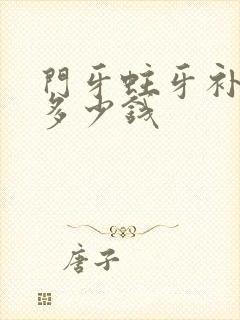 門牙蛀牙补
多少錢
唐子